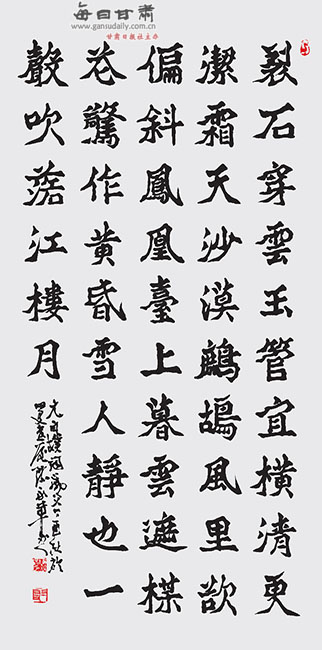 每日甘肃
www.gansudaily.com.cn
甘肃日报社主办
裂石穿雲玉管宜橫清更
潔霜天沙漠鷓鴣風里欲
偏斜鳳凰臺上暮雲遮楳
花驚作黄昏雪人靜也一
聲吹落江樓月